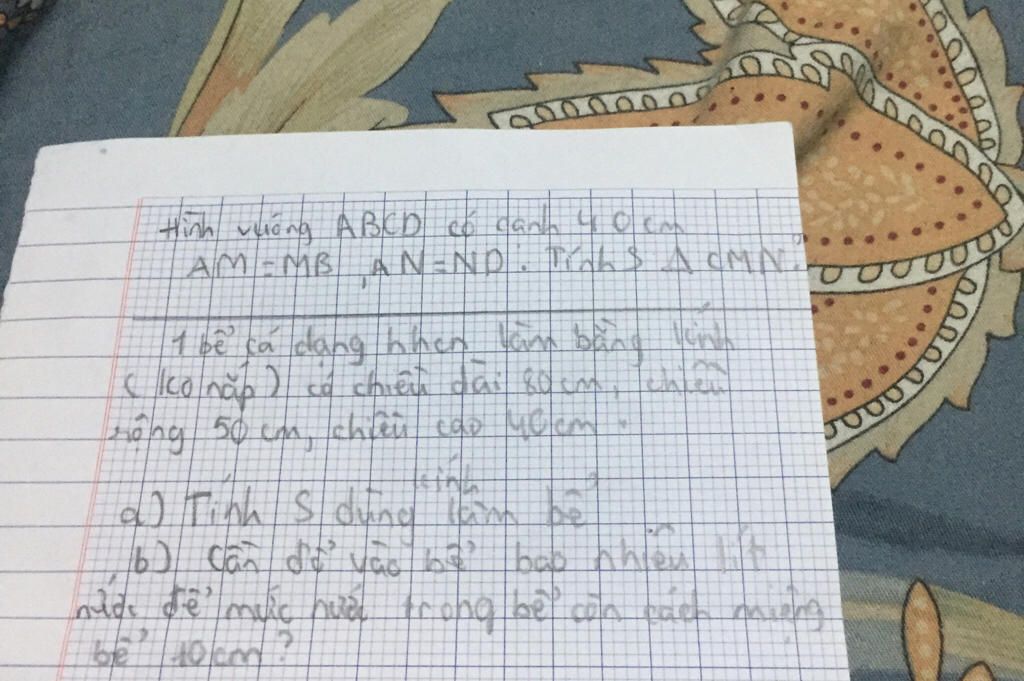 Hình vuông ABCD có cạnh 40cm
AM = MB, AN = ND. Tính S Δ CMN?
1 bể cá dạng hhcn làm bằng kính
(ko nắp) có chiều dài 80cm, chiều
rộng 50cm, chiều cao 40cm.
a) Tính S kính dùng làm bể
b) Cần đổ vào bể bao nhiêu lít
nước để mực nước trong bể còn cách miệng
bể 10cm?